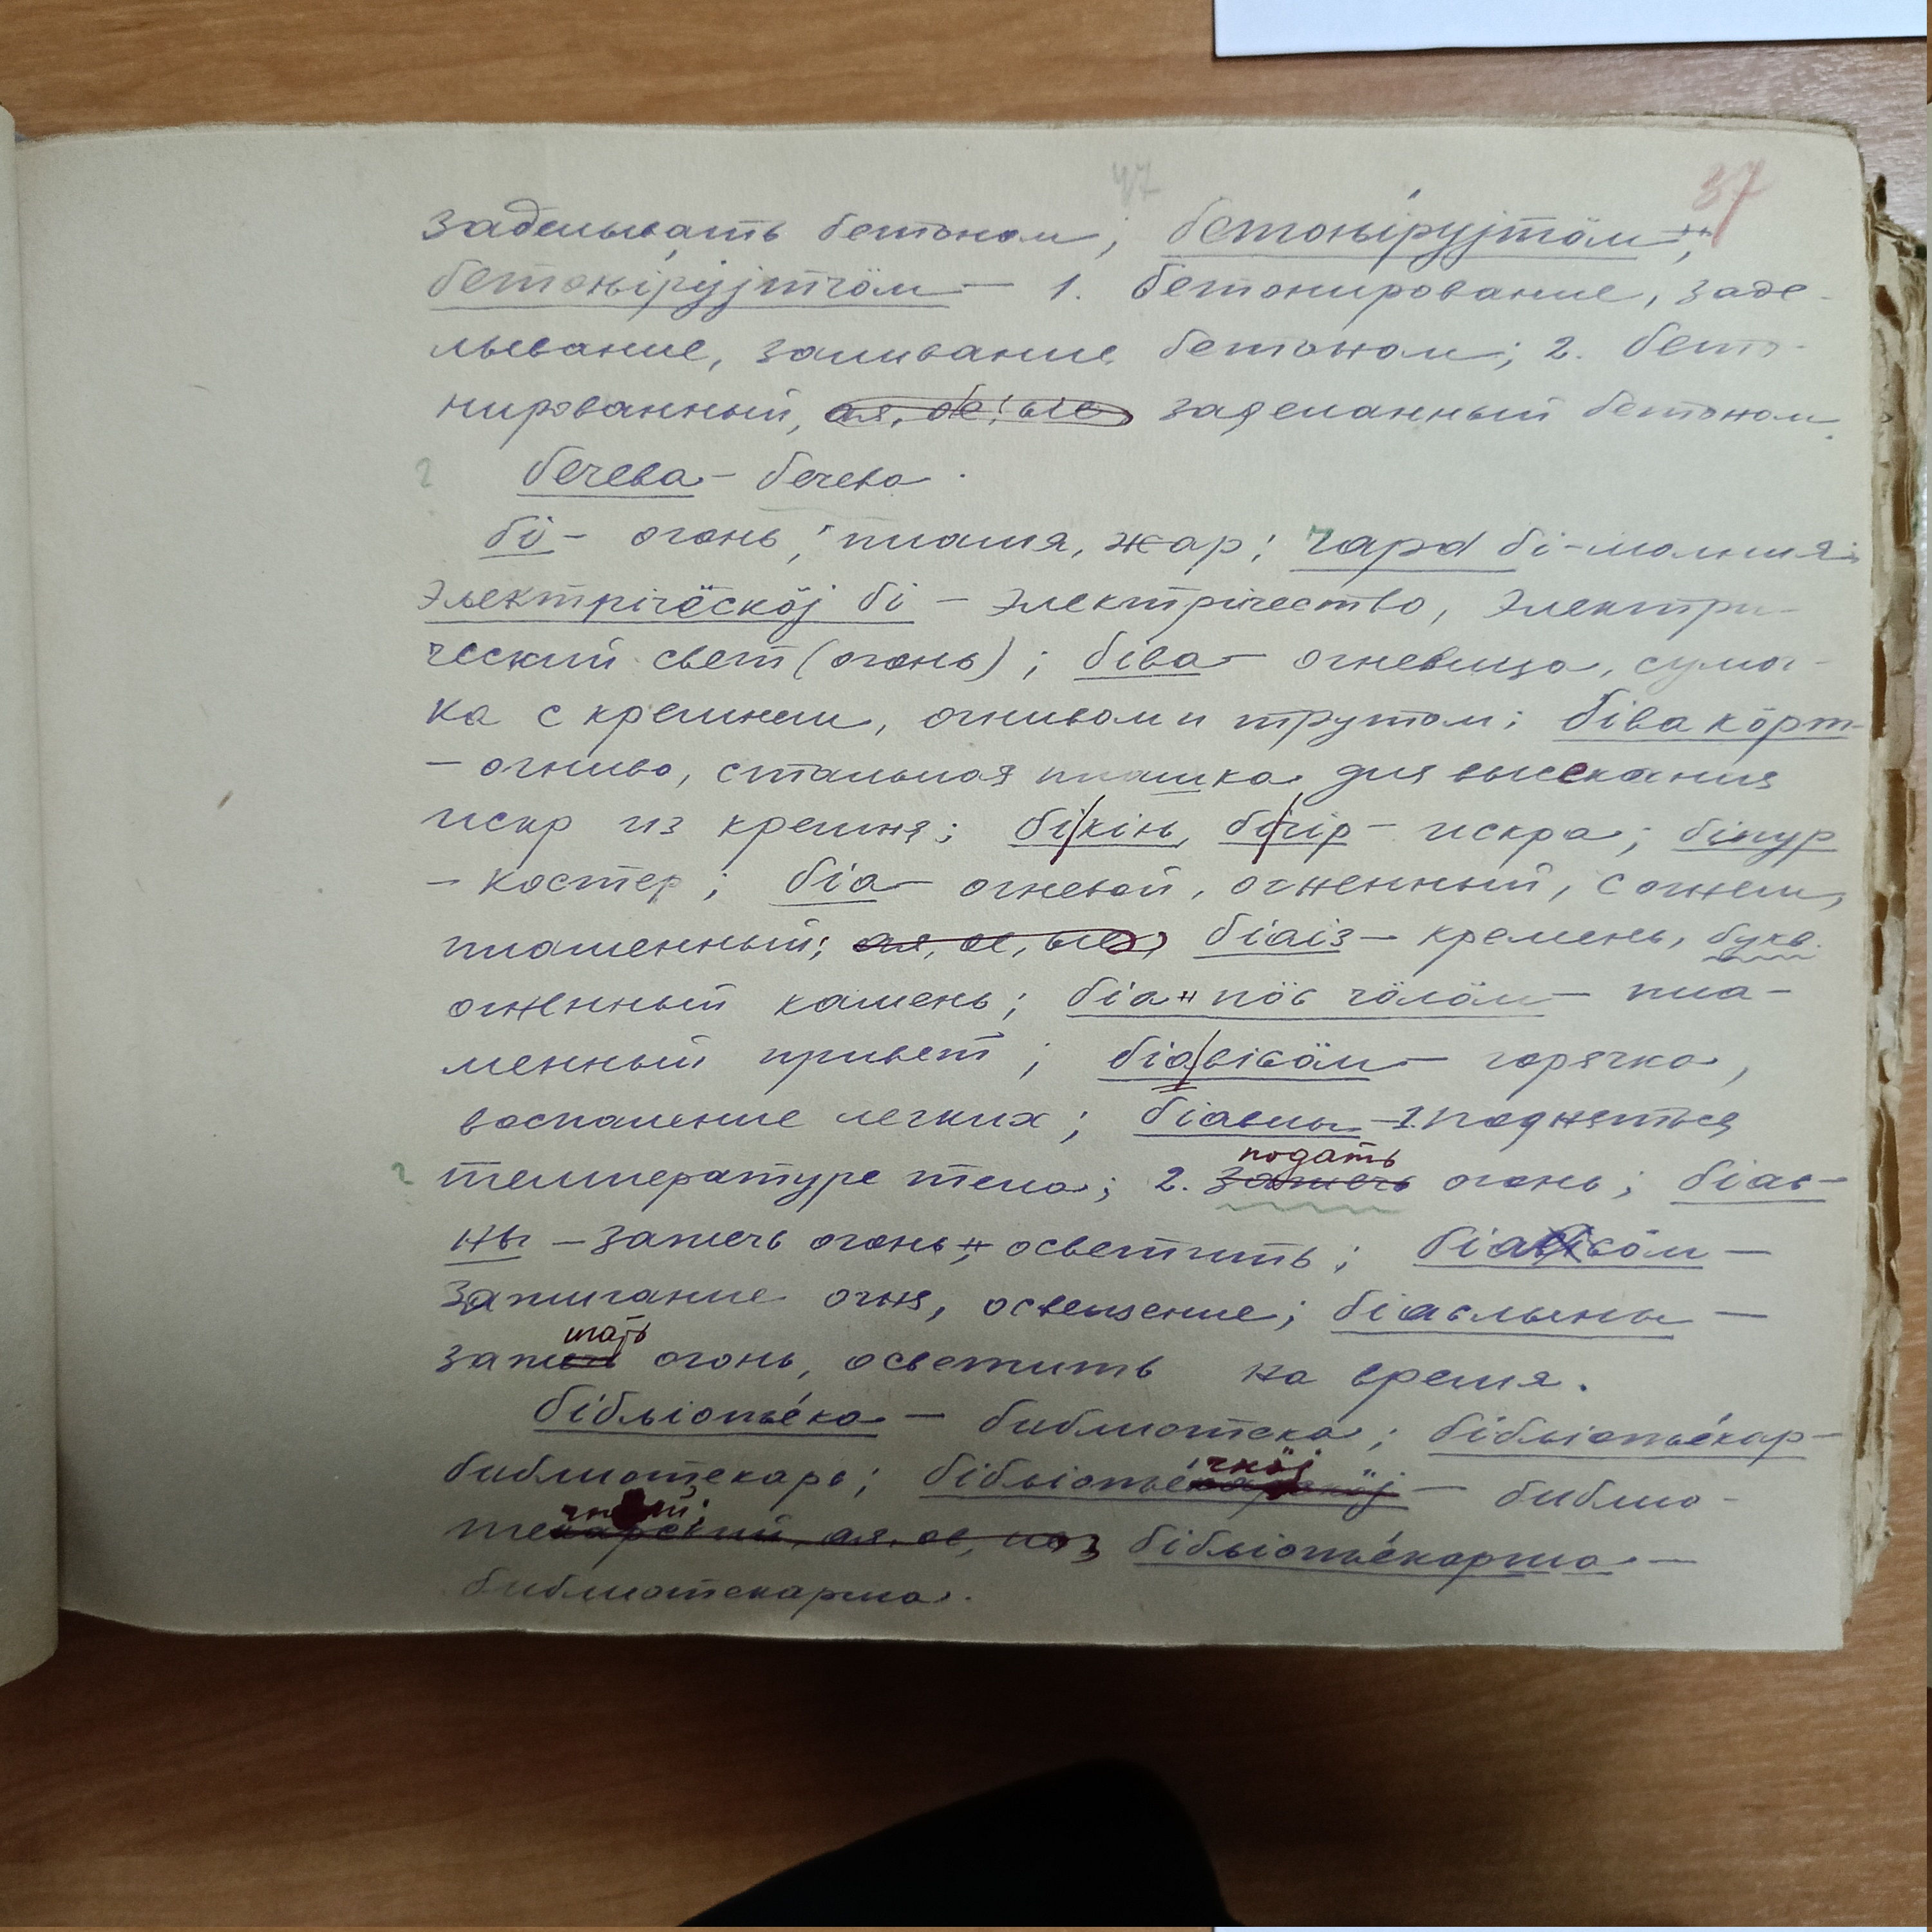 47 37
заделывать бетоном; бетонірујтöм,
бетонірујтчöм — 1. бетонирование, заде-
лывание, заливание бетоном; 2. бето-
нированный, ая, ое, ые заделанный бетоном.
бечева - бечева.
бі - огонь, пламя, жар; чард бі - молния;
электрічöскöј бі - электричество, электри-
ческий свет (огонь); біва - огневица, сумоч-
ка с кремнем, огнивом и трутом; біва кöрт
- огниво, стальная плашка для высекания
искр из кремня; бі кінь, бі чір - искра; біпур
- костер; біа - огневой, огненный, с огнем,
пламенный; ая, ое, ые, біаіз - кремень, букв.
огненный камень; біа пöсь чöлöм - пла-
менный привет; біа вісьöм - горячка,
воспаление легких; біавны - 1. подняться
температуре тела; 2. зажечь подать огонь; біась-
ны - зажечь огонь, осветить; біасьöм -
зажигание огня, освещение; біасьлыны -
зажигать огонь, осветить на время.
бібліотека - библиотека; бібліотекар -
библиотекарь; бібліотечнöј - библио-
течный; карский, ая, ое, ие, бібліотекарша -
библиотекарша.